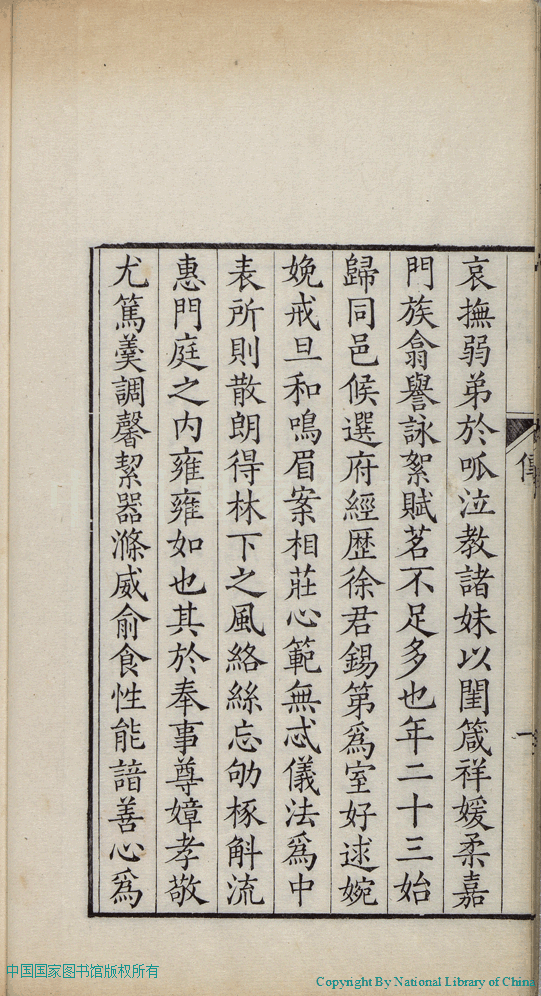 哀撫弱弟於呱泣教諸妹以閨箴祥媛柔嘉
門族翕譽詠絮賦茗不足多也年二十三始
歸同邑候選府經歷徐君錫第爲室好逑婉
娩戒旦和鳴眉案相莊心範無忒儀法爲中
表所則散朗得林下之風絡絲忘劬椓斛流
惠門庭之内雍雍如也其於奉事尊嫜孝敬
尤篤羹調馨絜器滌威俞食性能諳善心爲
傳
一
中国国家图书馆版权所有
Copyright By National Library of China